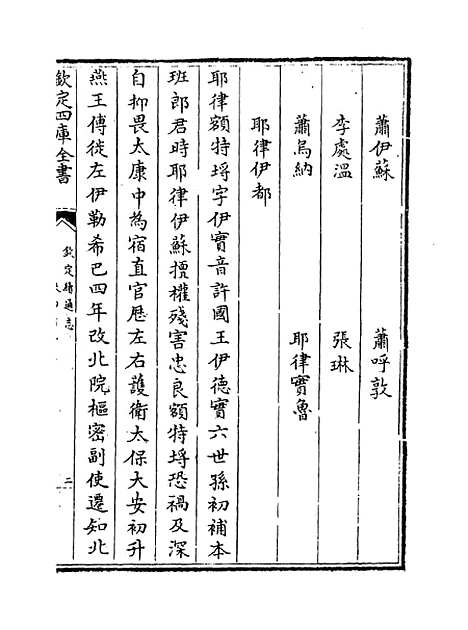 蕭伊蘇　蕭呼敦
李處溫　張琳
蕭烏納　耶律實魯
耶律伊都
耶律額特埒字伊實音許國王伊德實六世孫初補本
班郎君時耶律伊蘇擅權殘害忠良額特埒恐禍及深
自抑畏太康中為宿直官歷左右護衛太保大安初升
燕王傅徙左伊勒希巴四年改北院樞密副使遷知北
欽定四庫全書
欽定續通志
二